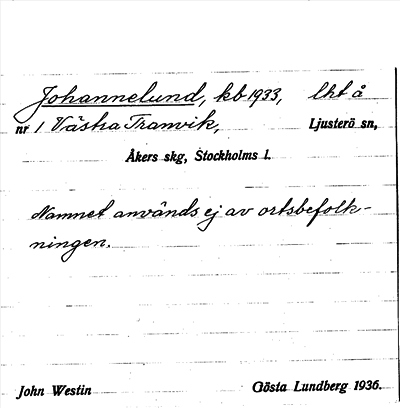 Johannelund, kb 1933, lht å
nr 1 Västra Tranvik, Ljusterö sn,
Åkers skg, Stockholms l.
Namnet används ej av ortsbefolk-
ningen.
John Westin Gösta Lundberg 1936.